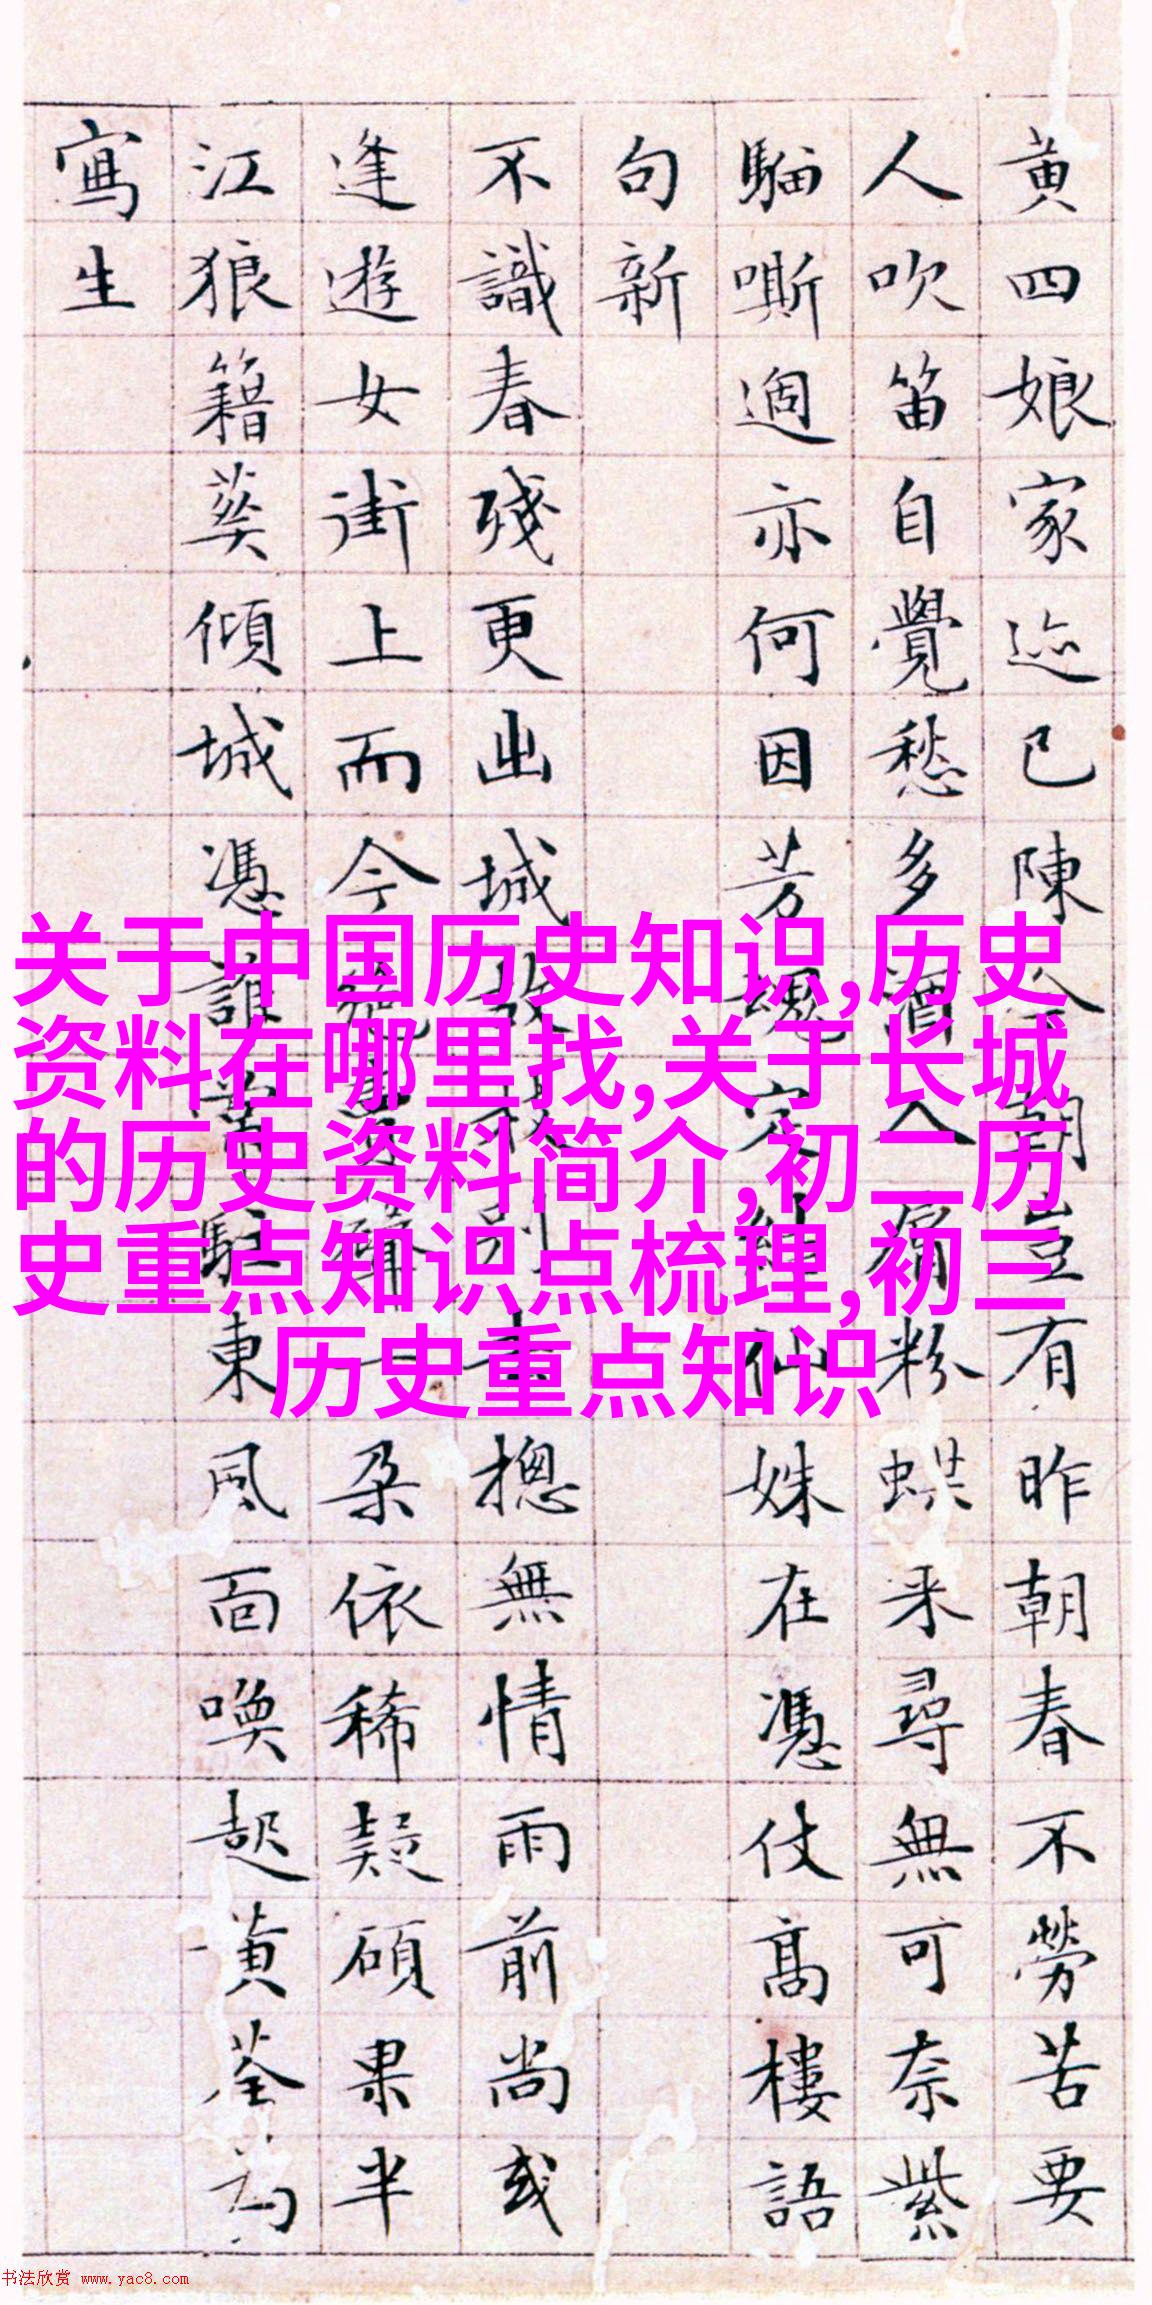 黄四娘家迹已陳今朝豈有昨朝春不勞苦要
人吹笛自覺愁多酒入粉蝶来尋無可奈紫
騮嘶過亦何因芳魂定結仙姝在憑仗高樓語
句新
不識春殘更出城故枝別去摠無情雨前尚或
逢遊女街上而今絶賣聲一朵依稀疑碩果半
江狼籍葵傾城憑誰駐東風面喚起黄荃為
寫生
关于中国历史知识,历史
资料在哪里找,关于长城
的历史资料简介,初二历
史重点知识点梳理,初三
历史重点知识
书法欣赏 www.yac8.com